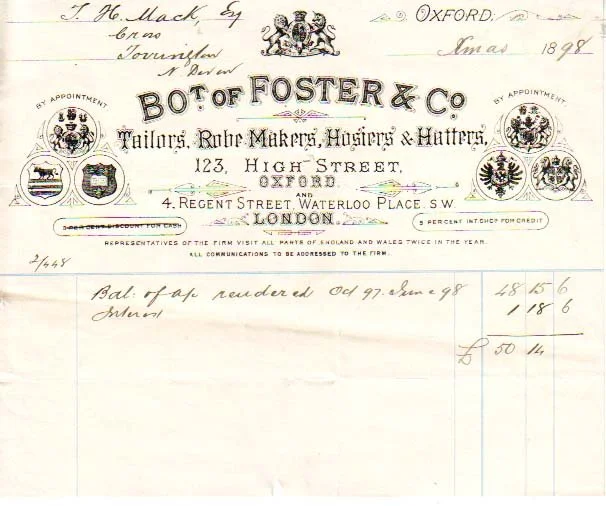 T. H. Mack, Esq
Cross
Torrington
N Devon
OXFORD,
Xmas 1898
BY APPOINTMENT
BOT. OF FOSTER & CO.
BY APPOINTMENT.
Tailors, Robe Makers, Hosiers & Hatters,
123, HIGH STREET,
OXFORD.
AND
4. REGENT STREET, WATERLOO PLACE. S.W.
LONDON.
5 PER CENT DISCOUNT FOR CASH
5 PER CENT INT. CHGD FOR CREDIT
REPRESENTATIVES OF THE FIRM VISIT ALL PARTS OF ENGLAND AND WALES TWICE IN THE YEAR.
ALL COMMUNICATIONS TO BE ADDRESSED TO THE FIRM.
2/448
Bal: of a/c rendered Oct 97. June 98 48 15 6
Interest 1 18 6
£ 50 14